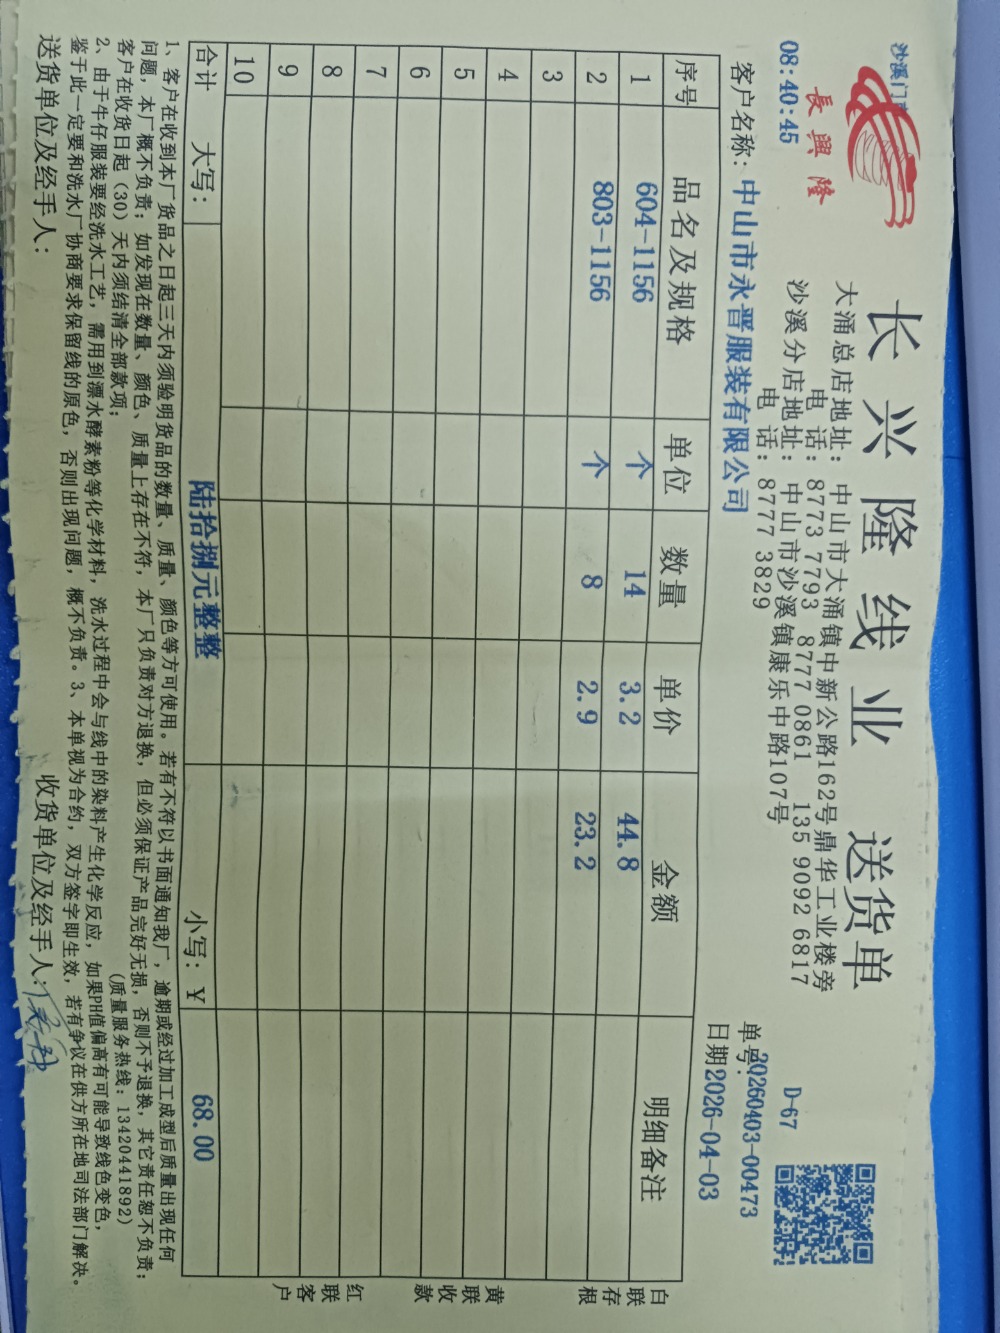 沙溪门市
08:40:45
長興隆
长兴隆线业 送货单
大涌总店地址: 中山市大涌镇中新公路162号鼎华工业楼旁
电 话: 8773 7793 8777 0861 135 9092 6817
沙溪分店地址: 中山市沙溪镇康乐中路107号
电 话: 8777 3829
D-67
单号:20260403-00473
客户名称: 中山市永晋服装有限公司
日期2026-04-03
序号 品名及规格 单位 数量 单价 金额 明细备注
1 604-1156 个 14 3.2 44.8
2 803-1156 个 8 2.9 23.2
3
4
5
6
7
8
9
10
合计 大写: 陆拾捌元整整 小写: ¥ 68.00
白联存根
黄联收款
红联客户
1、客户在收到本厂货品之日起三天内须验明货品的数量、质量、颜色等方可使用。若有不符以书面通知我厂,逾期或经过加工成型后质量出现任何
问题,本厂概不负责;如发现在数量、颜色、质量上存在不符,本厂只负责对方退换,但必须保证产品完好无损,否则不予退换,其它责任恕不负责;
客户在收货日起(30)天内须结清全部款项; (质量服务热线:13420441892)
2、由于牛仔服装要经洗水工艺,需用到漂水酵素粉等化学材料,洗水过程中会与线中的染料产生化学反应,如果PH值偏高有可能导致线色变色,
鉴于此一定要和洗水厂协商要求保留线的原色,否则出现问题,概不负责。3、本单视为合约,双方签字即生效,若有争议在供方所在地司法部门解决。
送货单位及经手人: 收货单位及经手人: